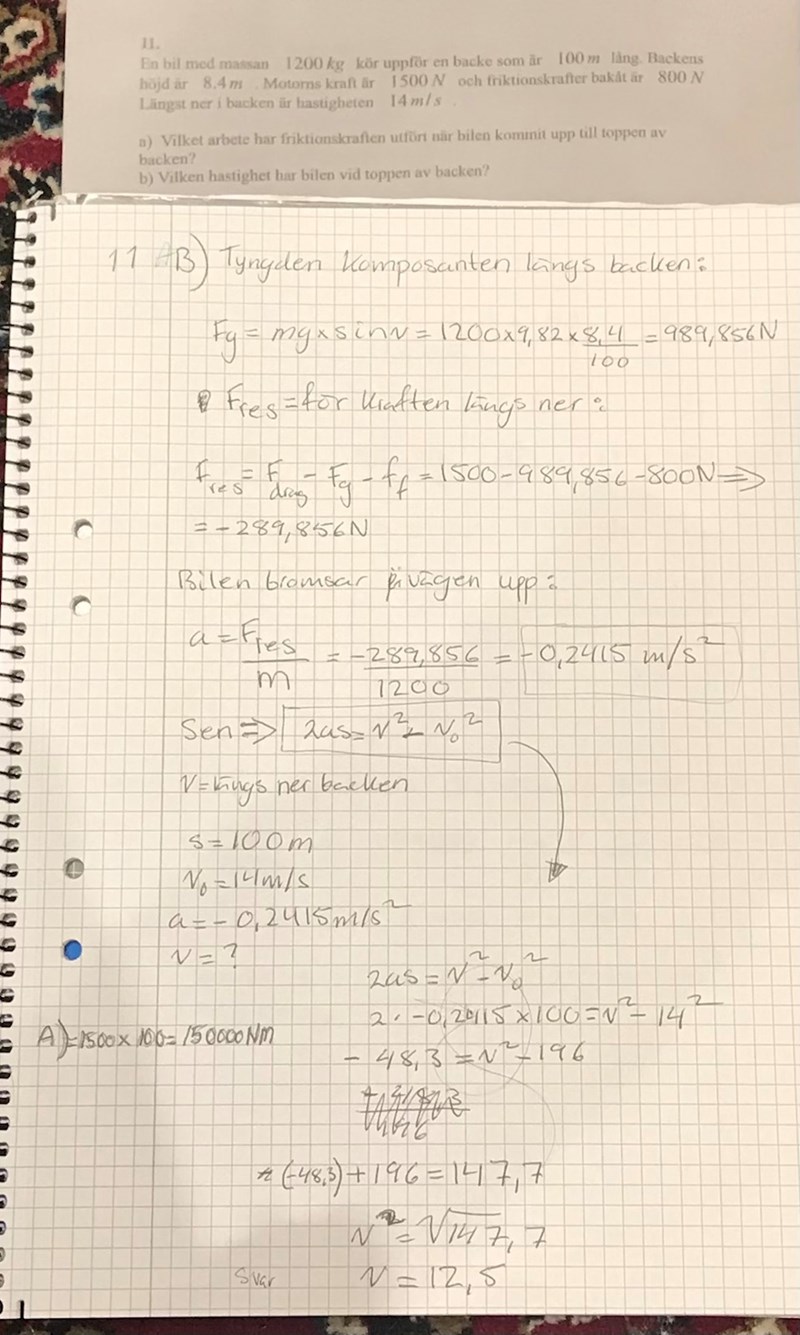 11.
En bil med massan 1200 kg kör uppför en backe som är 100 m lång. Backens
höjd är 8.4 m . Motorns kraft är 1500 N och friktionskrafter bakåt är 800 N
Längst ner i backen är hastigheten 14 m/s .
a) Vilket arbete har friktionskraften utfört när bilen kommit upp till toppen av
backen?
b) Vilken hastighet har bilen vid toppen av backen?
11 B) Tyngden komposanten längs backen:
Fg = mg×sinv = 1200×9,82×8,4/100 = 989,856N
Fres = för kraften längs ner:
Fres = Fdrag - Fg - Ff = 1500-989,856-800N =>
= -289,856N
Bilen bromsar på vägen upp:
a = Fres/m = -289,856/1200 = -0,2415 m/s²
Sen => 2as = v² - v₀²
v = längs ner backen
s = 100m
v₀ = 14m/s
a = -0,2415m/s²
v = ?
2as = v² - v₀²
2· -0,2415×100 = v² - 14²
A) = 1500×100 = 150000Nm
- 48,3 = v² - 196
(-48,3) + 196 = 147,7
v = √147,7
Svar v = 12,5